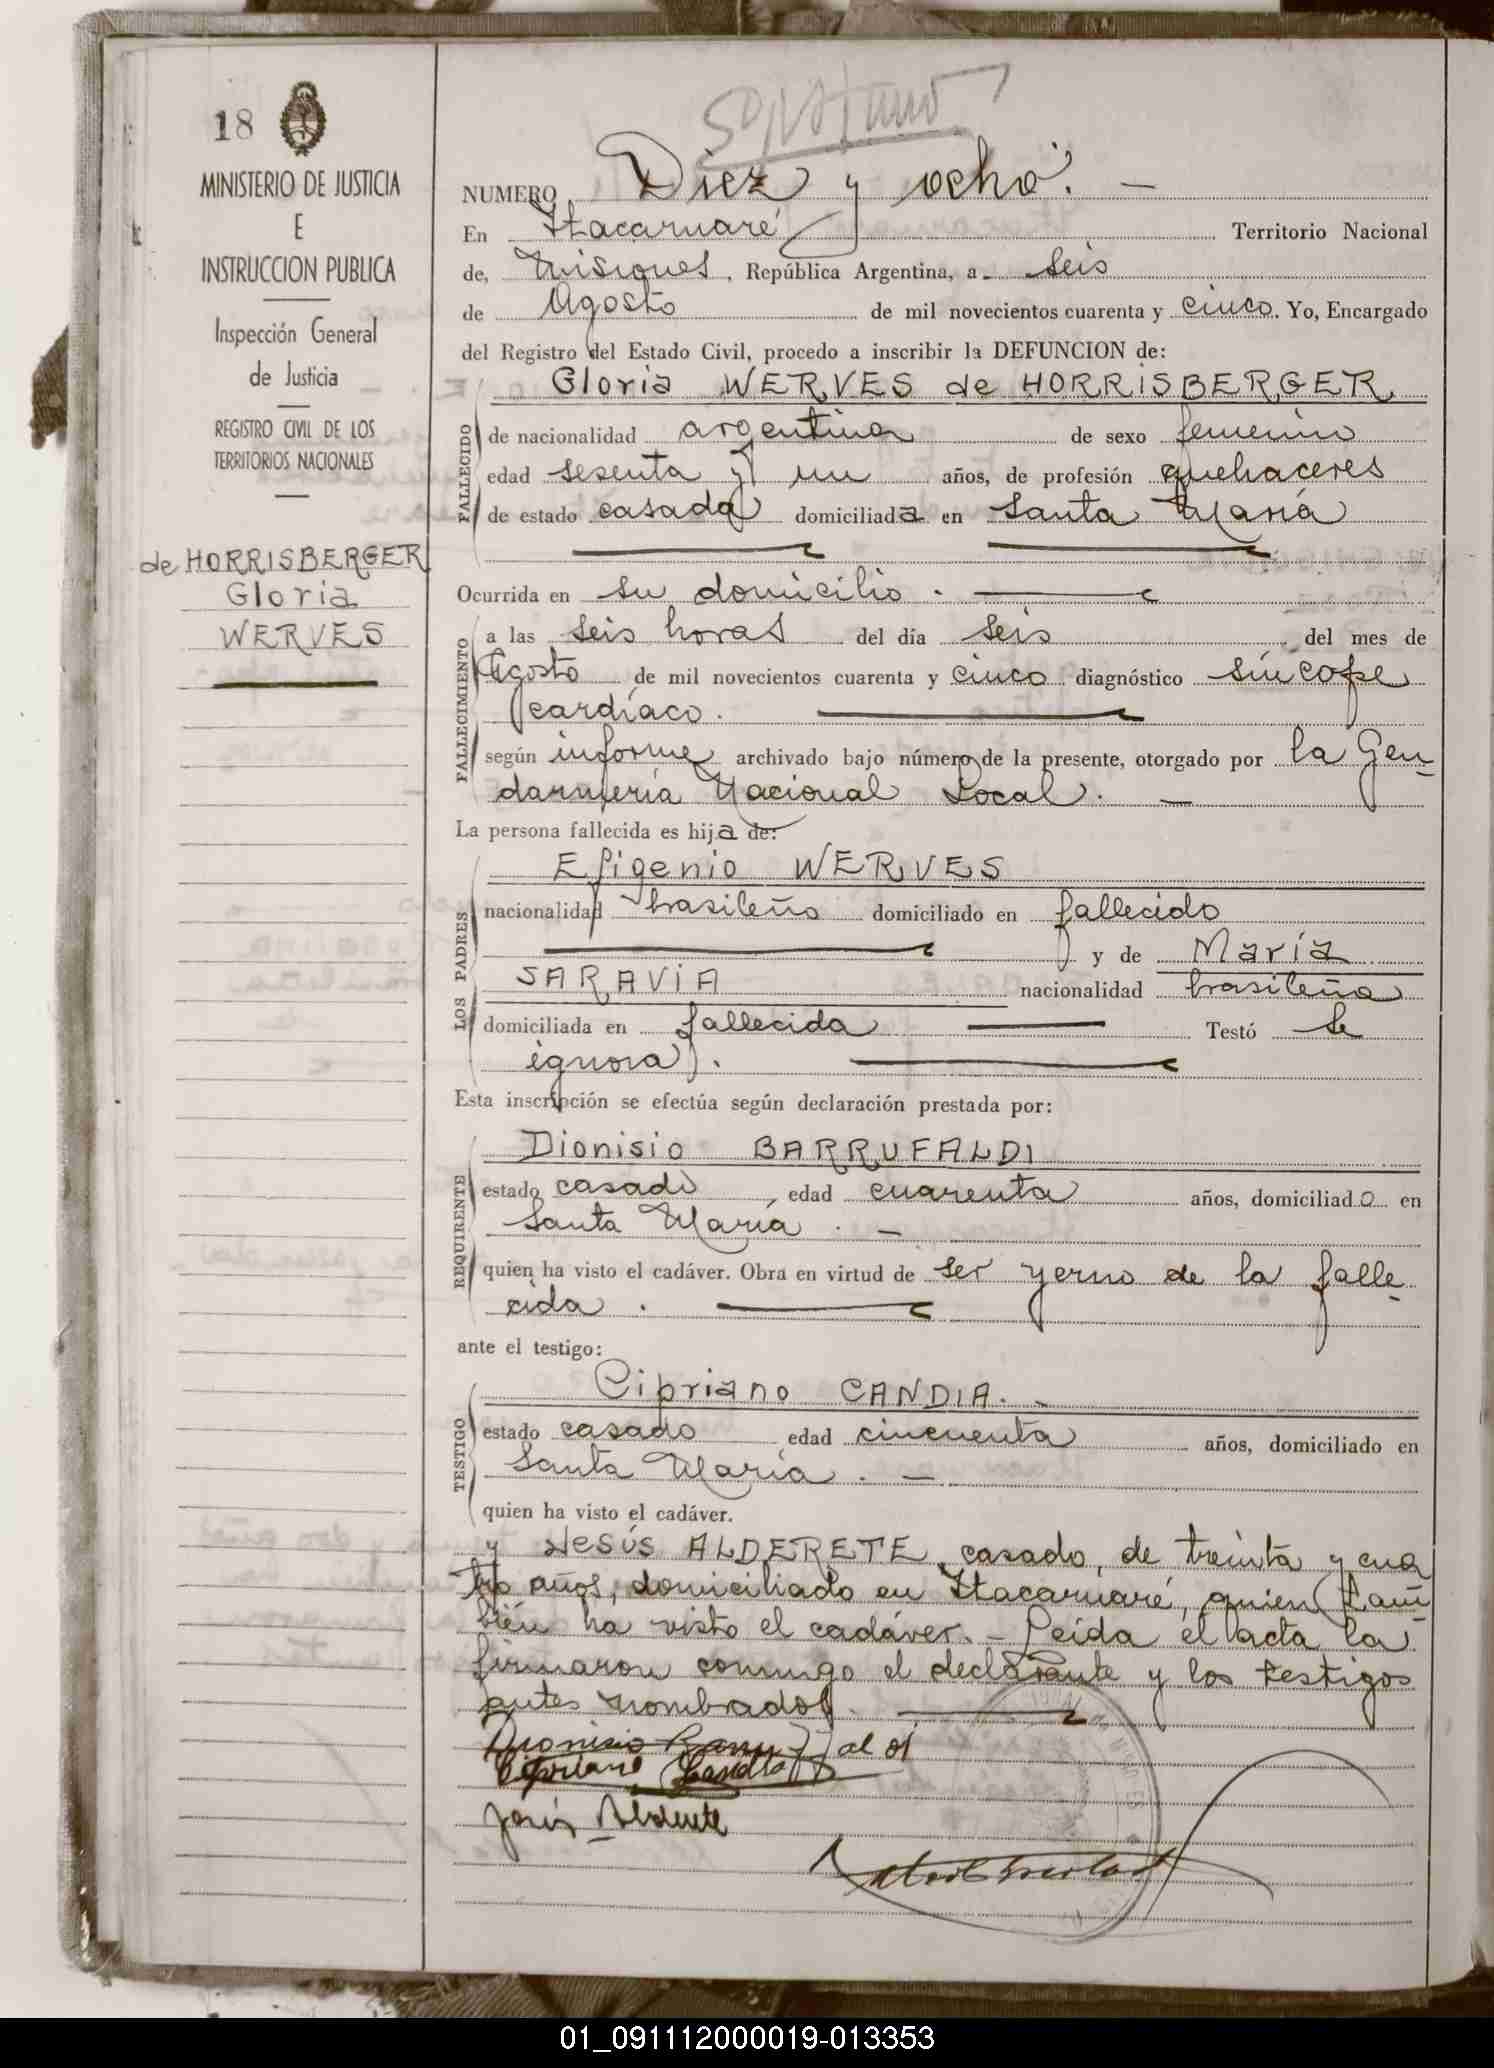 18
MINISTERIO DE JUSTICIA
E
INSTRUCCION PUBLICA
Inspección General
de Justicia
REGISTRO CIVIL DE LOS
TERRITORIOS NACIONALES
de HORRISBERGER
Gloria
WERVES
NUMERO Diez y ocho. —
En Itacaruaré Territorio Nacional
de, Misiones, República Argentina, a seis
de Agosto de mil novecientos cuarenta y cinco. Yo, Encargado
del Registro del Estado Civil, procedo a inscribir la DEFUNCION de:
Gloria WERVES de HORRISBERGER
FALLECIDO
de nacionalidad argentina de sexo femenino
edad sesenta y un años, de profesión quehaceres
de estado casada domiciliada en Santa María
Ocurrida en su domicilio.
FALLECIMIENTO
a las seis horas del día seis del mes de
Agosto de mil novecientos cuarenta y cinco diagnóstico síncope
cardíaco.
según informe archivado bajo número de la presente, otorgado por la Gen-
darmería Nacional Local. —
La persona fallecida es hija de:
LOS PADRES
Efigenio WERVES
nacionalidad brasileño domiciliado en fallecido
y de María
SARAVIA nacionalidad brasileña
domiciliada en fallecida Testó Se
ignora.
Esta inscripción se efectúa según declaración prestada por:
REQUIRENTE
Dionisio BARRUFALDI
estado casado, edad cuarenta años, domiciliado en
Santa María. —
quien ha visto el cadáver. Obra en virtud de ser yerno de la falle-
cida.
ante el testigo:
TESTIGO
Cipriano CANDIA. -
estado casado edad cincuenta años, domiciliado en
Santa María. —
quien ha visto el cadáver.
y Jesús ALDERETE, casado, de treinta y cua
tro años, domiciliado en Itacaruaré, quien tam-
bién ha visto el cadáver. - Leida el acta la
firmaron conmigo el declarante y los testigos
antes nombrados.
Dionisio
Cipriano Candia
Jesús Alderete
01_091112000019-013353